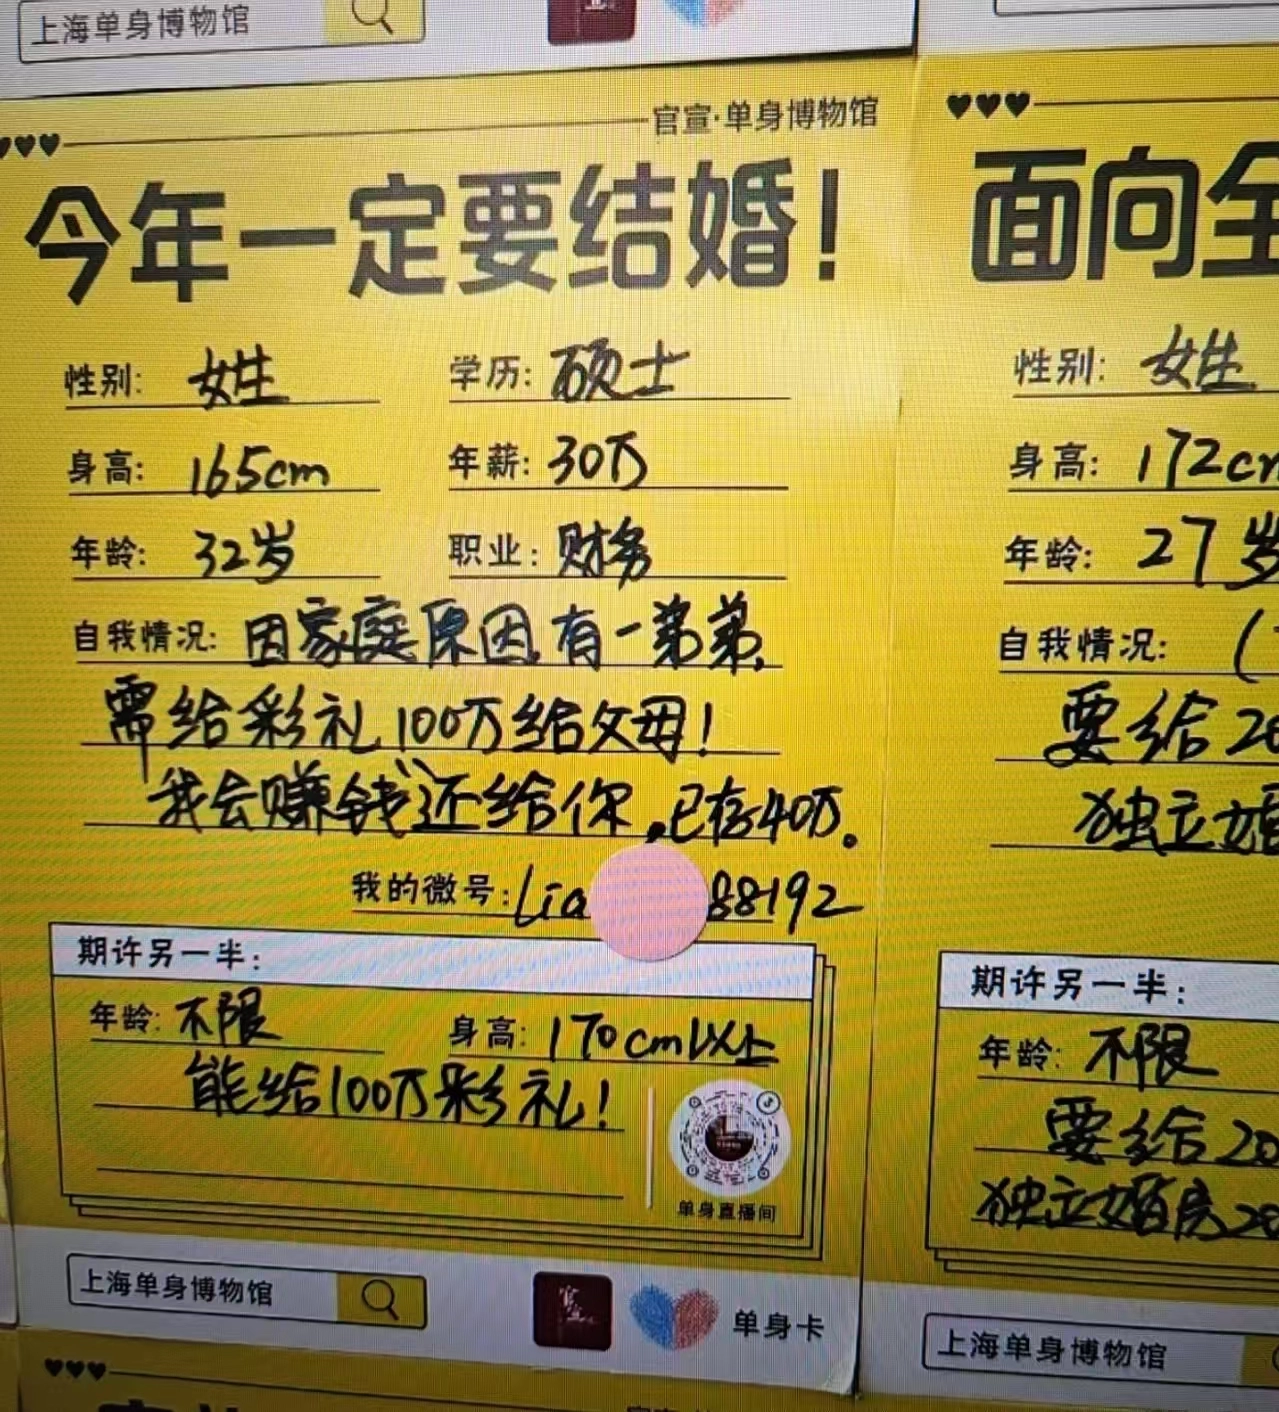 上海单身博物馆
官宣·单身博物馆
今年一定要结婚!
性别: 女生
学历: 硕士
身高: 165cm
年薪: 30万
年龄: 32岁
职业: 财务
自我情况: 因家庭原因,有一弟弟,
需给彩礼100万给父母!
我会赚钱还给你,已存40万。
我的微号: Lia 88192
期许另一半:
年龄: 不限
身高: 170cm以上
能给100万彩礼!
单身直播间
上海单身博物馆
官宣
单身卡
面向全
性别: 女生
身高: 172cm
年龄: 27岁
自我情况:
要给20
独立婚
期许另一半:
年龄: 不限
要给20
独立婚房20
上海单身博物馆